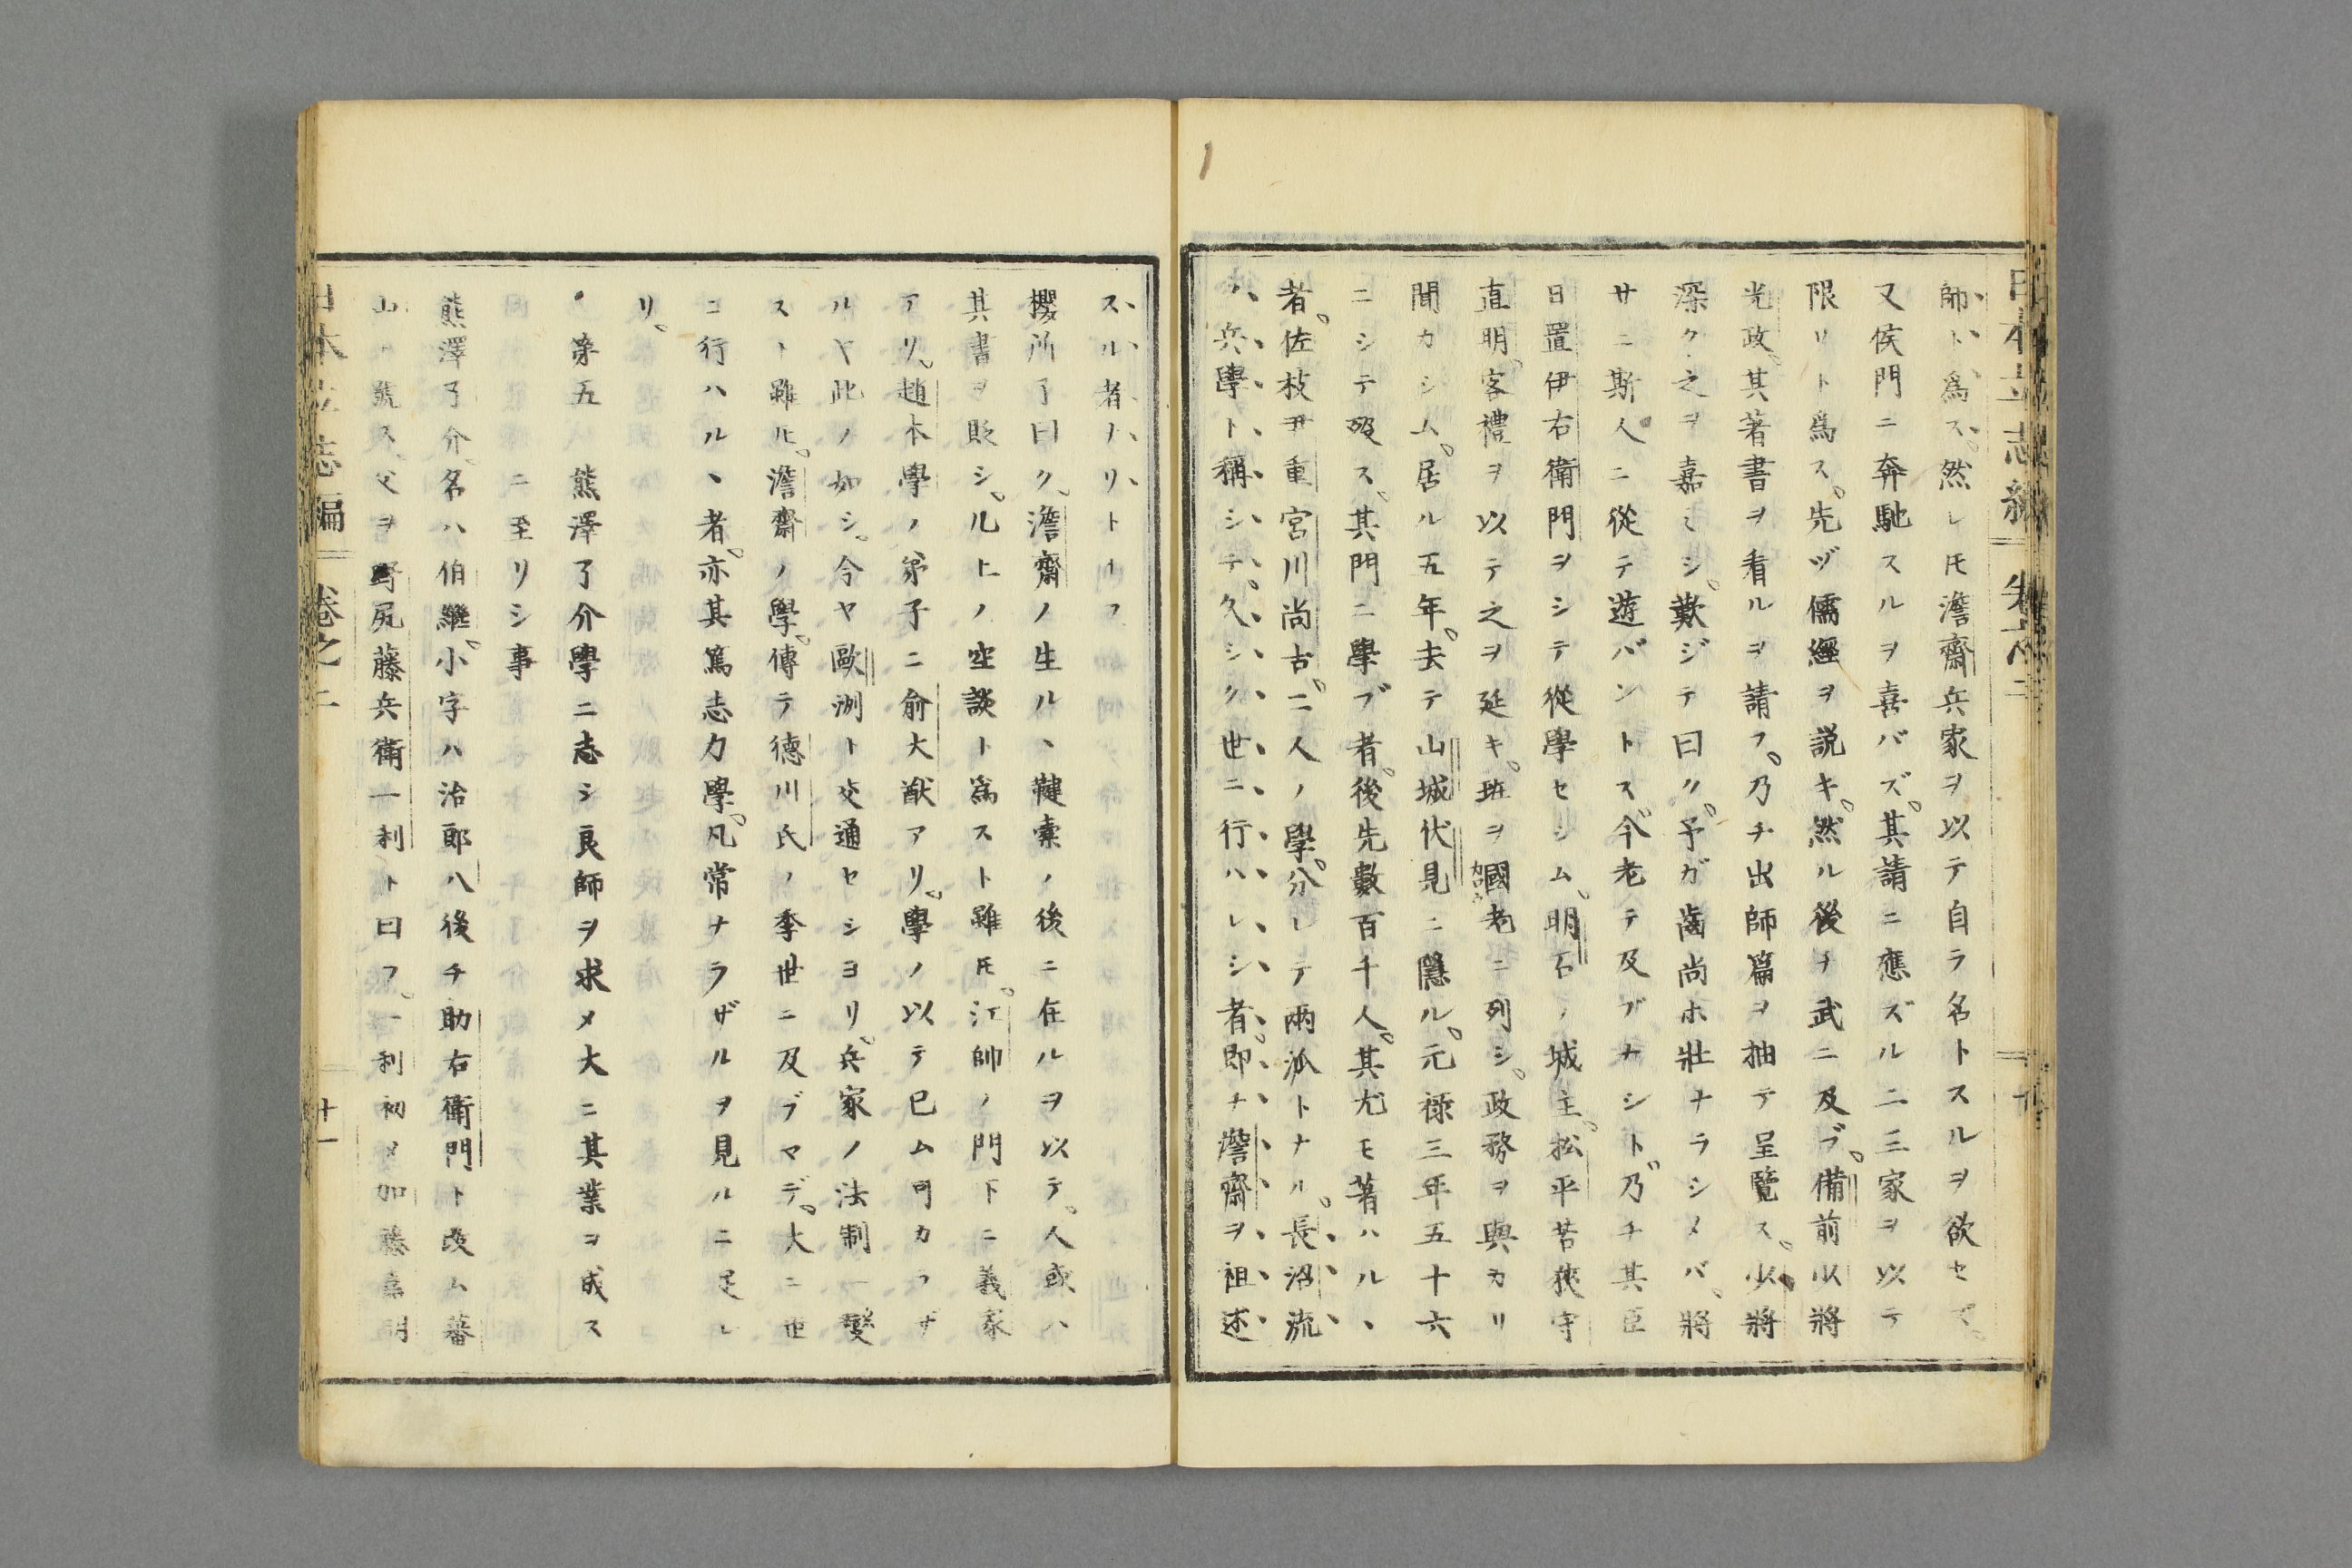 師ト爲ス。然レ𪜈澹齋兵家ヲ以テ自ラ名トスルヲ欲セズ。
又侯門ニ奔馳スルヲ喜バズ。其請ニ應ズル二三家ヲ以テ
限リト爲ス。先ヅ儒經ヲ説キ。然ル後チ武ニ及ブ。備前少將
光政。其著書ヲ看ルヲ請フ。乃チ出師篇ヲ抽テ呈覽ス。少將
深ク之ヲ嘉ミシ。歎ジテ曰ク。予ガ齒尚ホ壯ナラシメバ。將
サニ斯人ニ從テ遊バントス。今老テ及ブナシト。乃チ其臣
日置伊右衛門ヲシテ從學セシム。明石ノ城主。松平若狹守
直明。客禮ヲ以テ之ヲ延キ。班ヲ國老ニ列シ。政務ヲ與カリ
聞カシム。居ル五年。去テ山城伏見ニ隱ル。元祿三年五十六
ニシテ歿ス。其門ニ學ブ者。後先數百千人。其尤モ著ハルヽ
者。佐枝尹重宮川尚古。二人ノ學。分レテ兩派トナル。長沼流
ハ兵學ト稱シテ。久シク世ニ行ハレシ者。即チ澹齋ヲ祖述
スル者ナリトナフ
櫻所子曰ク。澹齋ノ生ルヽ鞬櫜ノ後ニ在ルヲ以テ。人或ハ
其書ヲ貶シ。几上ノ空談ト爲スト雖𪜈。江帥ノ門下ニ義家
アリ。趙本學ノ弟子ニ俞大猷アリ。學ノ以テ已ム可カラザ
ルヤ此ノ如シ。今ヤ歐洲ト交通セシヨリ。兵家ノ法制一變
スト雖𪜈。澹齋ノ學。傳テ德川氏ノ季世ニ及ブマデ。大ニ世
ニ行ハルヽ者。亦其篤志力學。凡常ナラザルヲ見ルニ足レ
リ。
第五 熊澤了介學ニ志シ良師ヲ求メ大ニ其業ヲ成ス
ニ至リシ事
熊澤了介。名ハ伯繼。小字ハ治郎八後チ助右衛門ト改ム蕃
山ト號ス。父ヲ野尻藤兵衛一利ト曰フ。一利初メ加藤嘉明
日本立志編 卷之二 十一